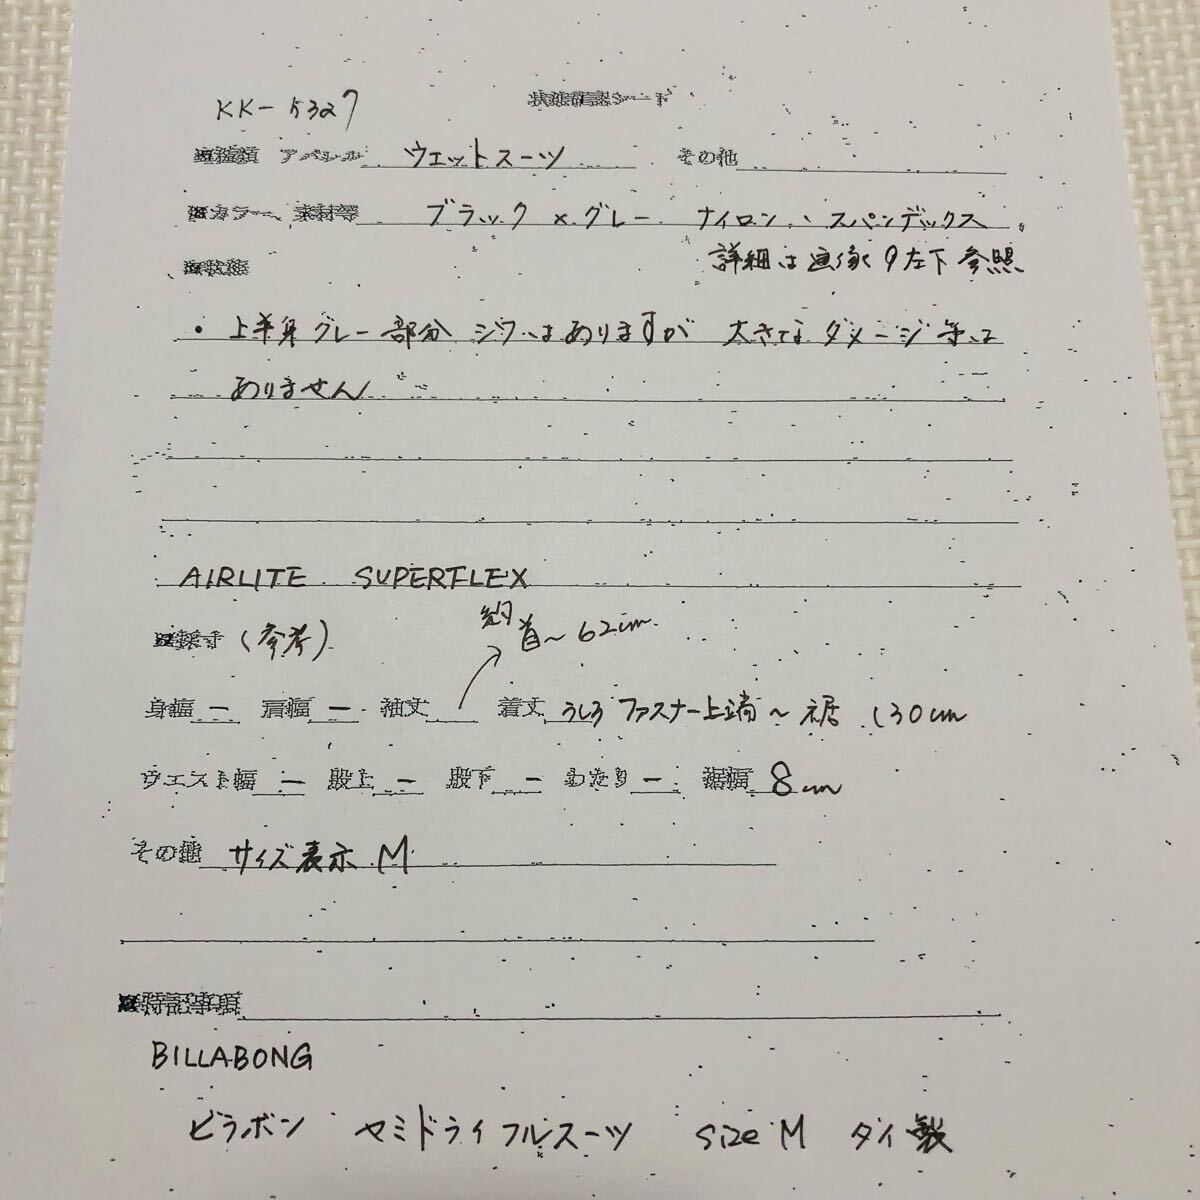 KK-5327 状態確認シート
※種類 アパレル ウエットスーツ その他
※カラー、素材等 ブラック×グレー ナイロン、スパンデックス
詳細は画像9左下参照
※状態
・上半身グレー部分 シワはありますが 大きなダメージ等は
ありません
AIRLITE SUPERFLEX
約首～62cm
※採寸(参考)
身幅 ー 肩幅 ー 袖丈 着丈 うしろファスナー上端～裾 130cm
ウエスト幅 ー 股上 ー 股下 ー わたり ー 裾幅 8cm
その他 サイズ表示 M
※特記事項
BILLABONG
ビラボン セミドライフルスーツ size M タイ製